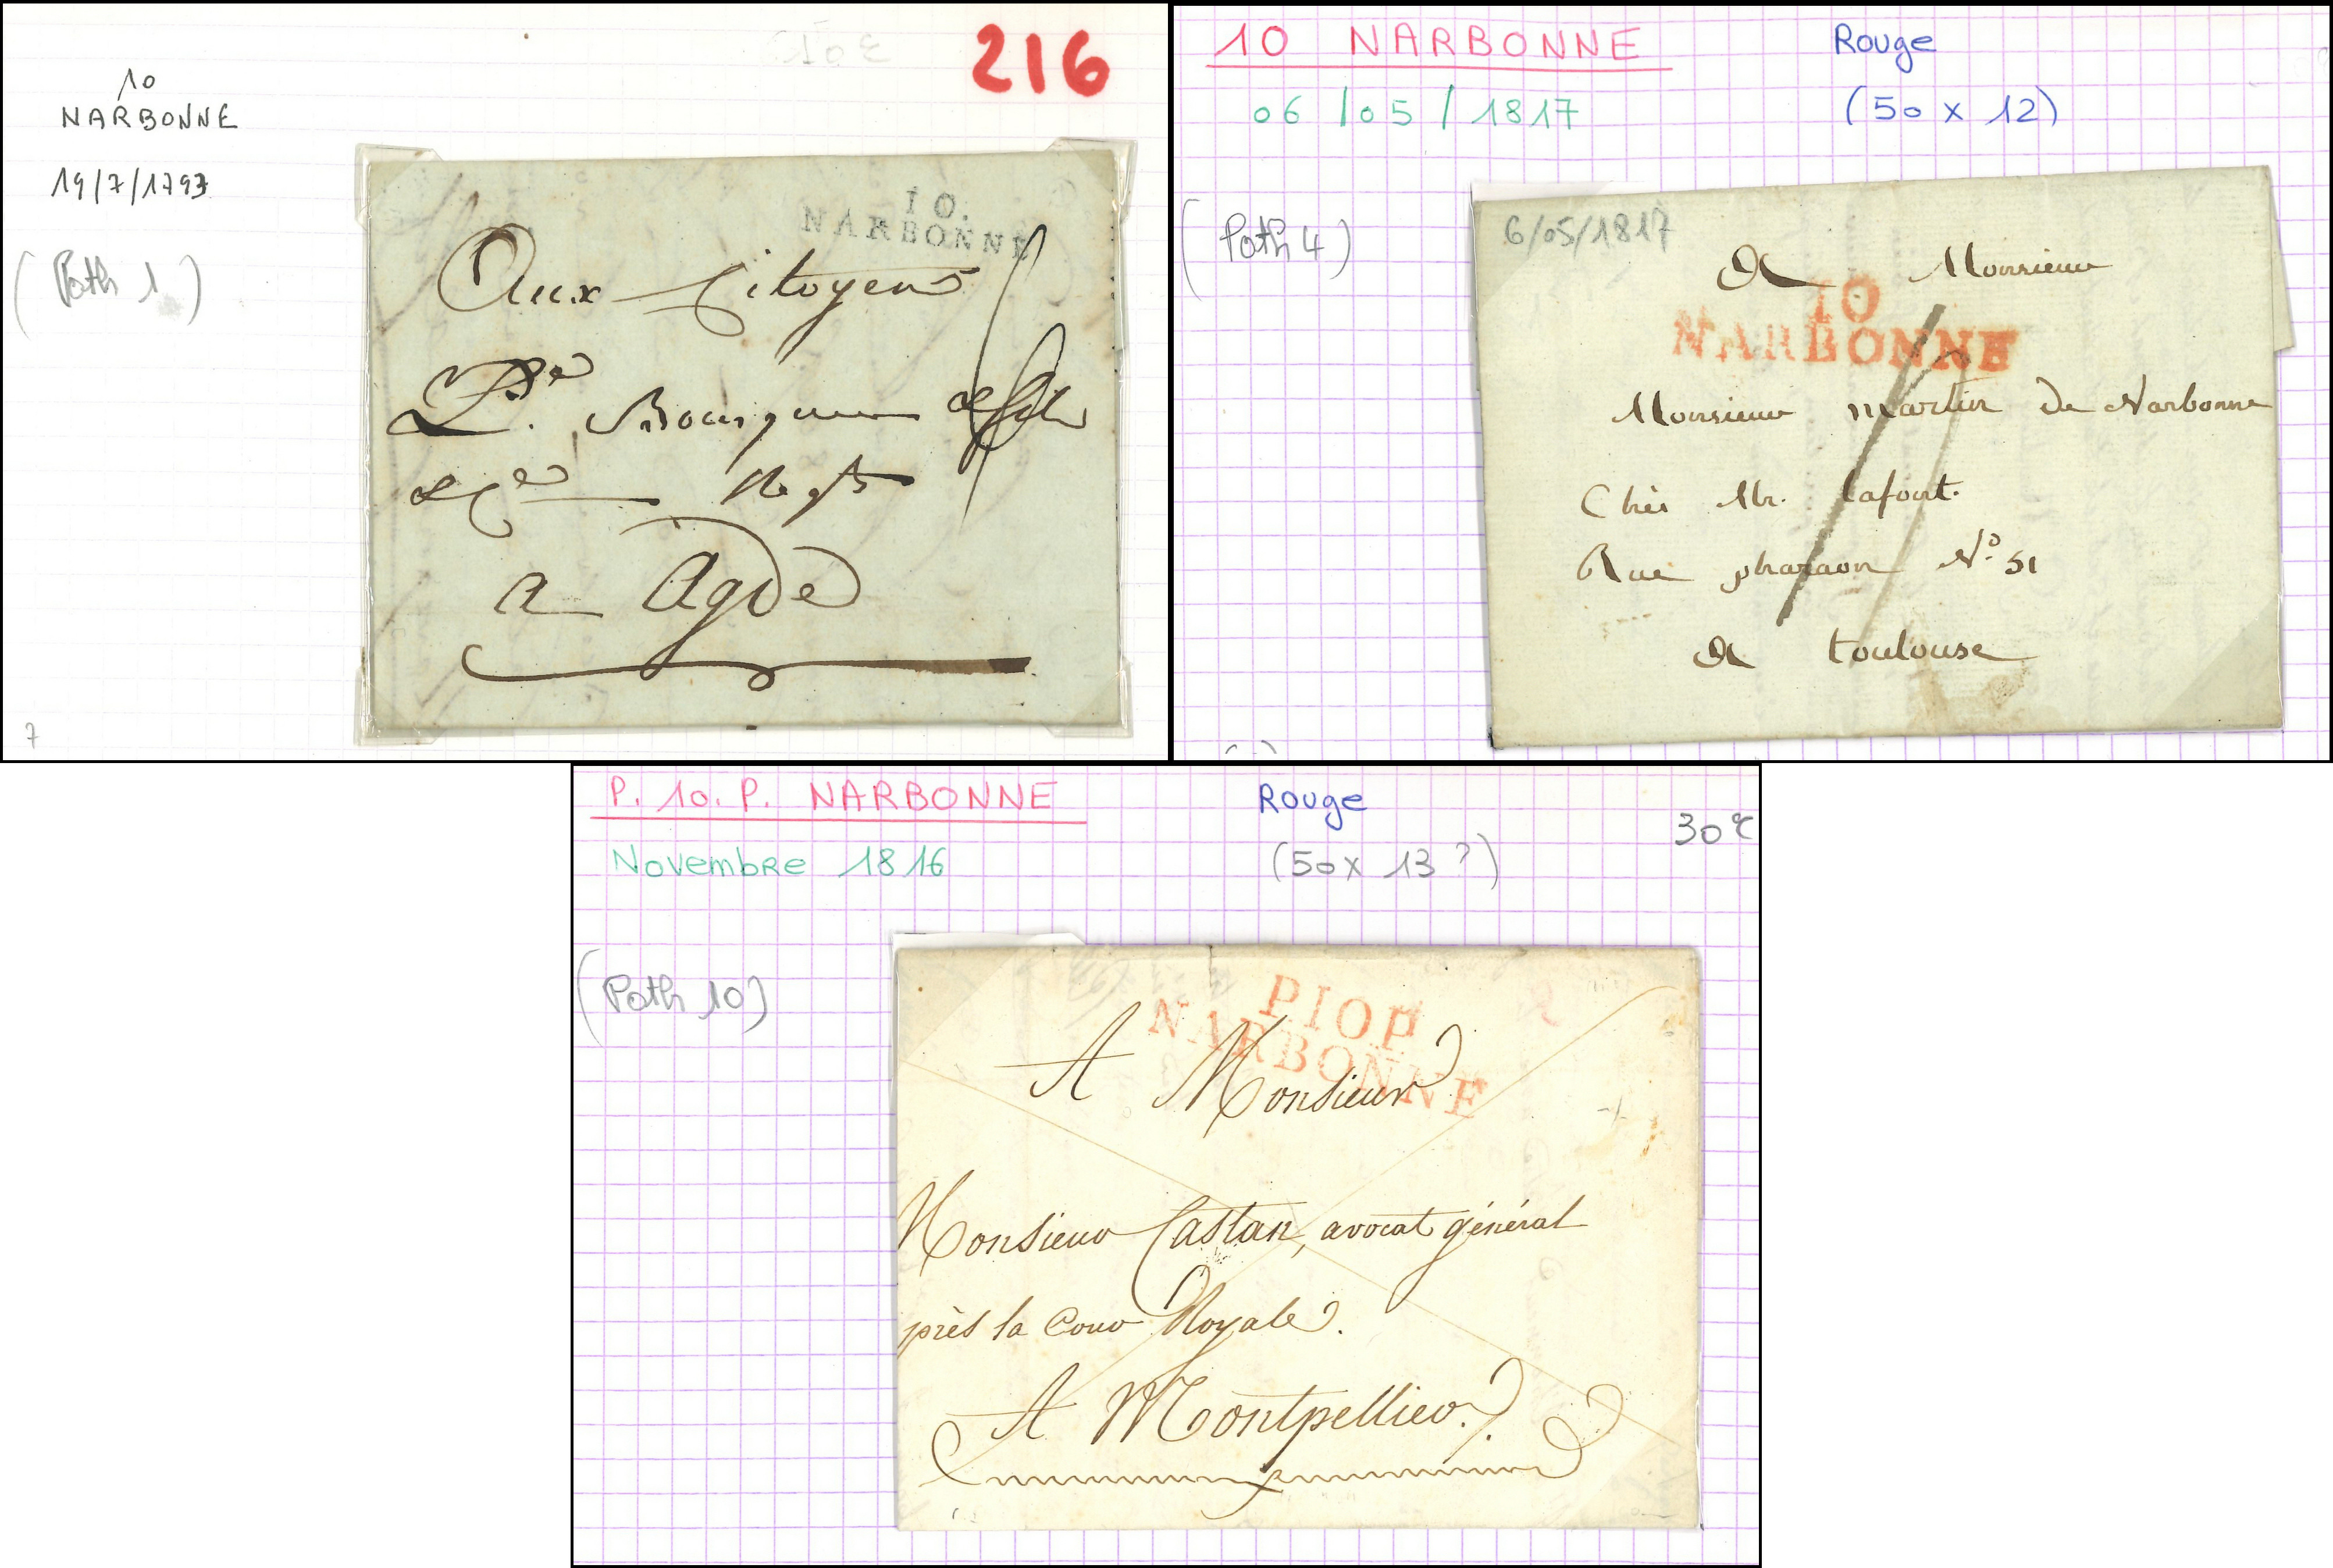 216
10
NARBONNE
19/7/1797
(Poth 1)
10.
NARBONNE
Aux Citoyens
a Agde
7
10 NARBONNE
Rouge
06/05/1817
(50 x 12)
(Poth 4)
6/05/1817
A Monsieur
10
NARBONNE
Monsieur martin de Narbonne
Chés Mr. lafont.
Rue pharaon N° 51
A toulouse
P. 10. P. NARBONNE
Rouge
30€
Novembre 1816
(50 x 13 ?)
(Poth 10)
P10P
NARBONNE
A Monsieur
Monsieur Castan, avocat général
près la Cour Royale.
A Montpellier.